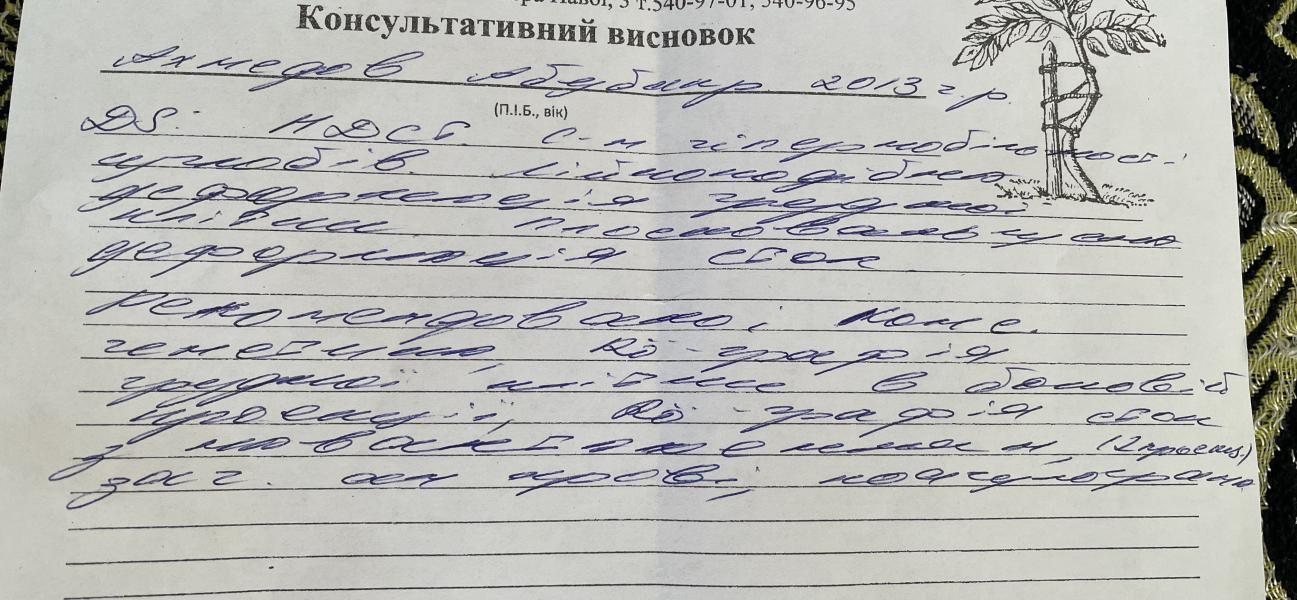 ра Навої, 3 т.540-97-01, 540-96-95
Консультативний висновок
Ахмедов Абубакр 2013 г.р.
(П.І.Б., вік)
DS: НДСТ. С-м гіпермобільності
суглобів. Лійкоподібна
деформація грудної
клітки. Плосковальгусна
деформація стоп
Рекомендовано: конс.
генетика, Rö-графія
грудної клітки в боковій
проекції, Rö-графія стоп
з навантаженням (2 проекц.)
заг. ан крові, коагулограма